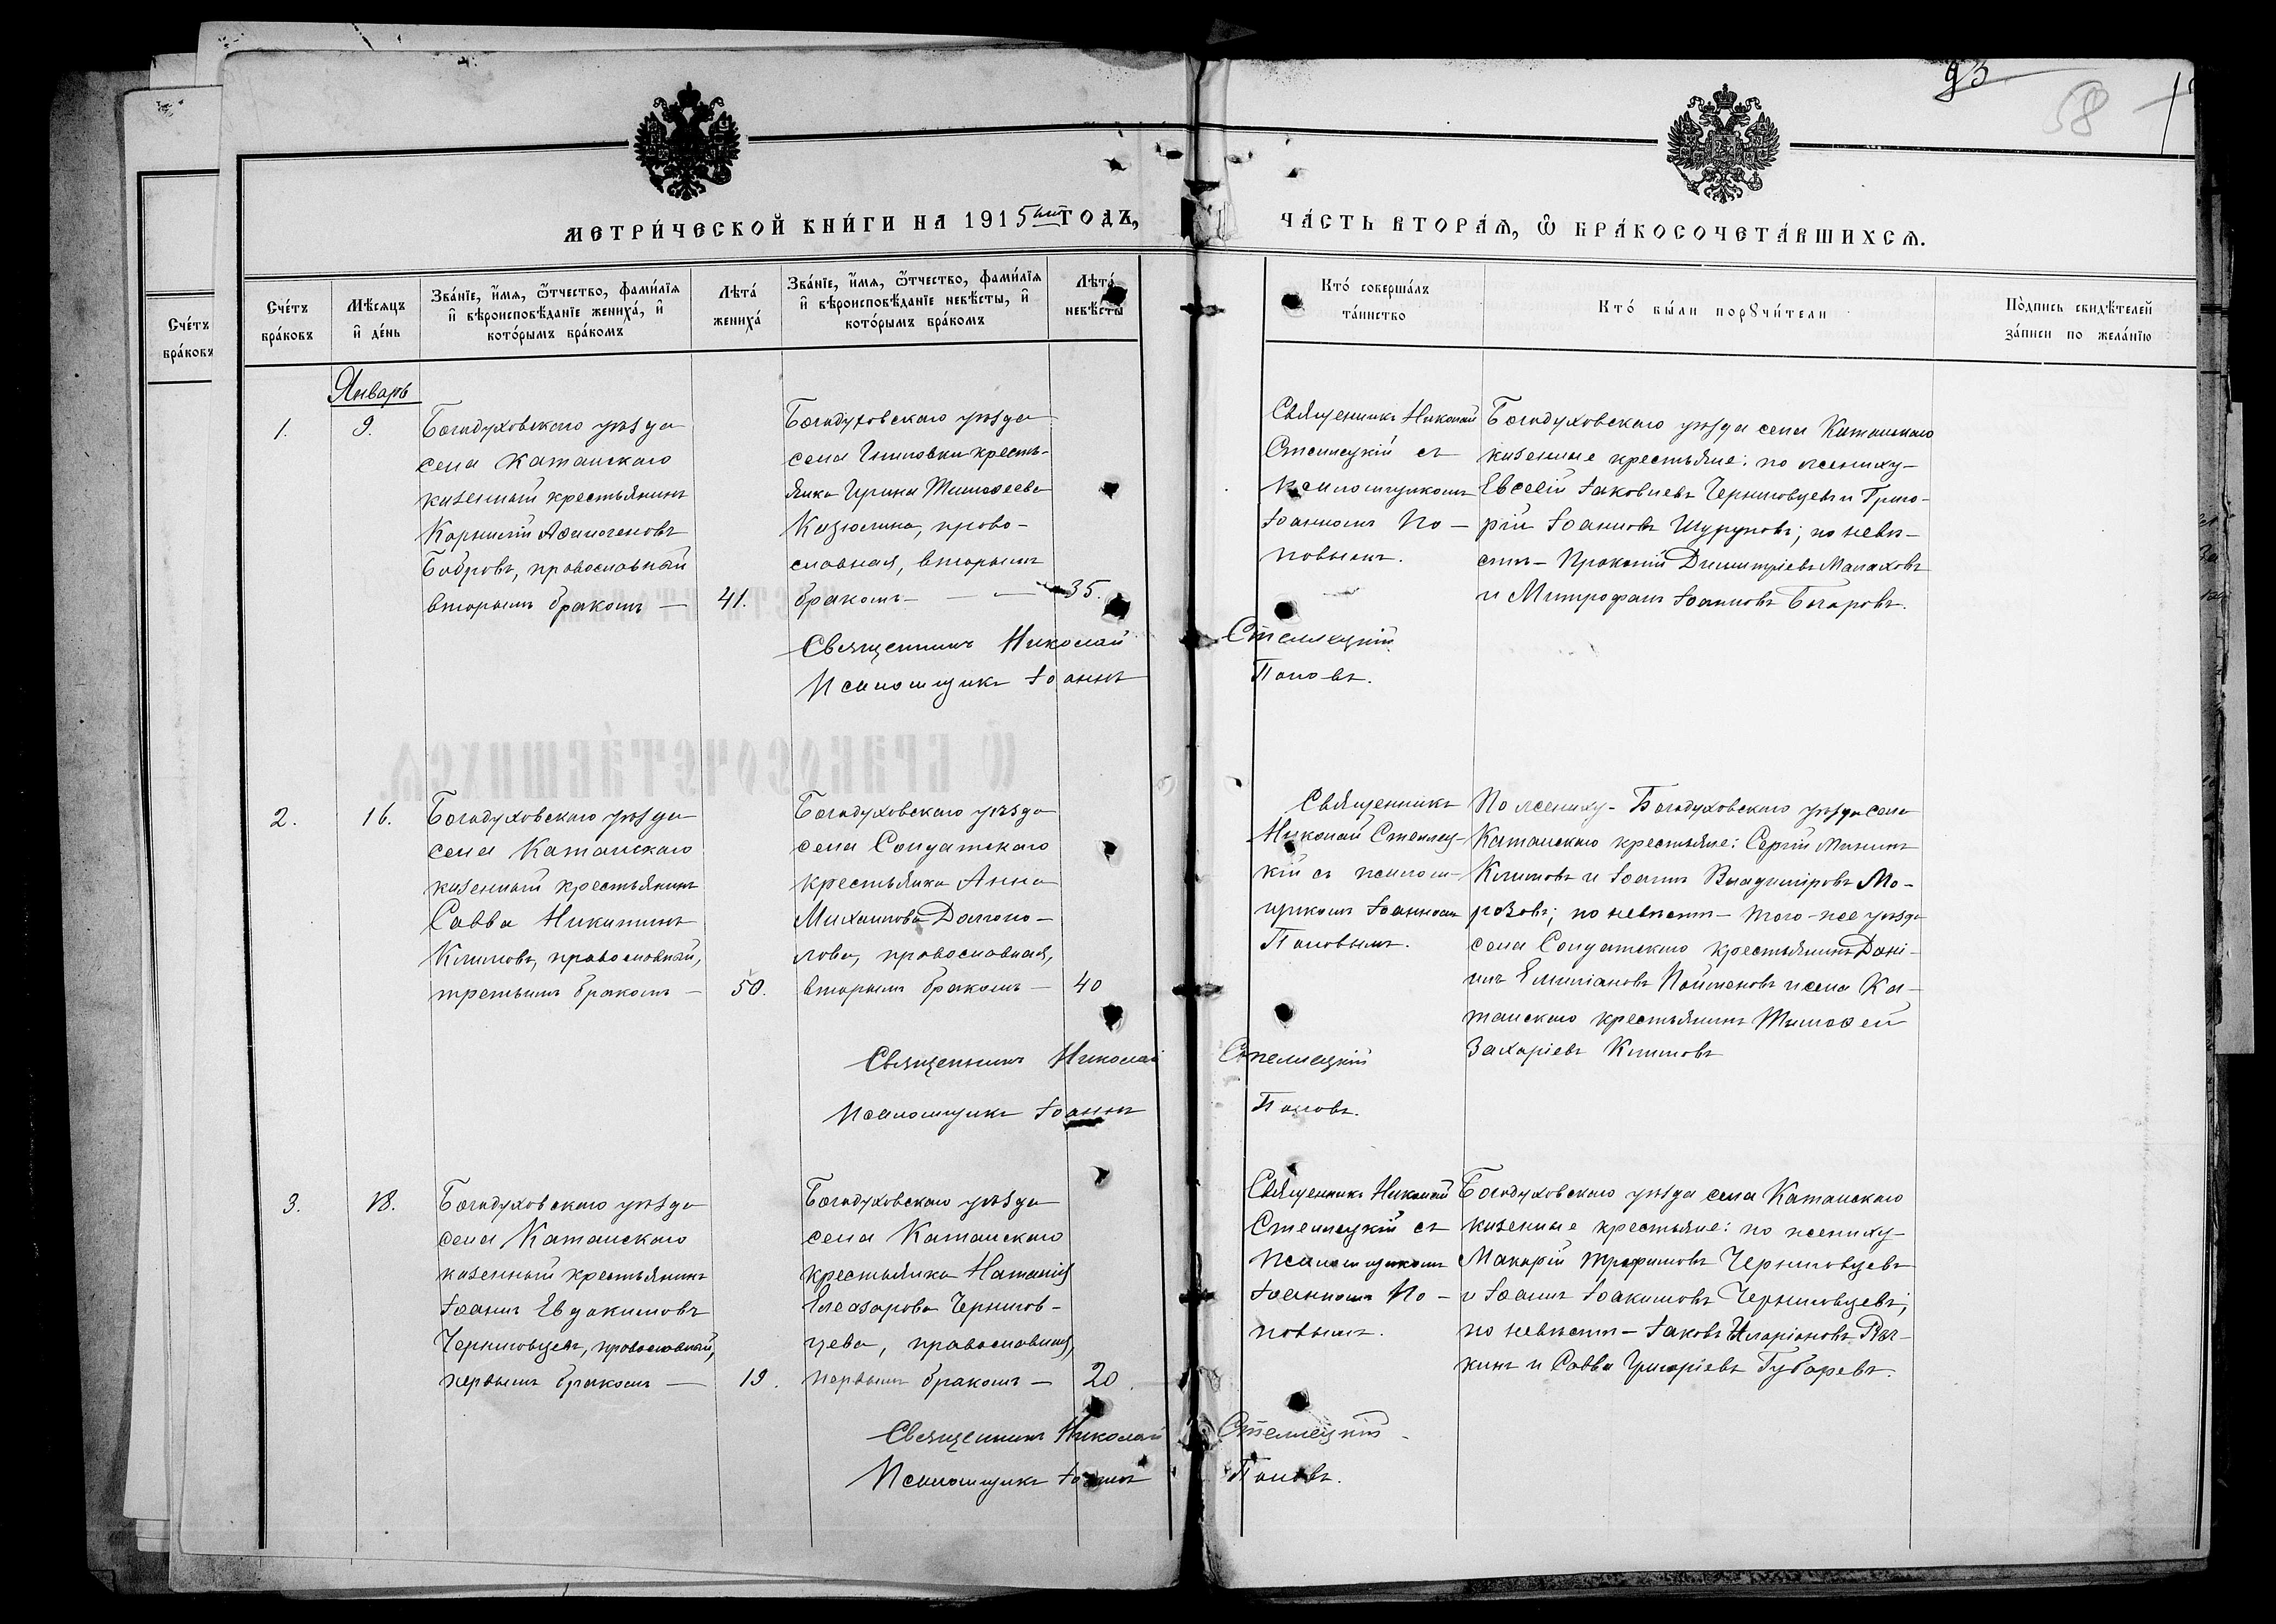 93
58
МЕТРИ́ЧЕСКОЙ КНИ́ГИ НА 1915 ый ГОДЪ,
ЧА́СТЬ ВТОРА́Ѧ, Ѡ҆ БРА́КОСОЧЕТА́ВШИХСѦ.
Сче́тъ
бра́ковъ
Сче́тъ
бра́ковъ
Мѣ́сѧцъ
и҆ де́нь
Зва́нїе, и҆́мѧ, ѻ҆́тчество, фами́лїѧ
и҆ вѣроисповѣ́данїе жениха́, и҆
кото́рымъ бра́комъ
Лѣта́
жениха́
Зва́нїе, и҆́мѧ, ѻ҆́тчество, фами́лїѧ
и҆ вѣроисповѣ́данїе невѣ́сты, и҆
кото́рымъ бра́комъ
Лѣта́
невѣ́сты
Кто́ соверша́лъ
та́инство
Кто́ бы́ли порꙋчи́тели
По́дпись свидѣ́телей
за́писи по жела́нїю
Январь
1.
9.
Богодуховскаго уѣзда
села Катанскаго
казенный крестьянинъ
Корнилій Аѳиногеновъ
Бобровъ, православный
вторымъ бракомъ —
41.
Богодуховскаго уѣзда
села крестъ-
янка Ирина Тимоѳеева
Казюлина, право-
славная, вторымъ
бракомъ — — —
35.
Священникъ Николай
Стеллецкій съ
псаломщикомъ
Іоанномъ По-
повымъ.
Богодуховскаго уѣзда села Катанскаго
казенные крестьяне: по жениху —
Евсевій Іаковлевъ Черниловцевъ и Григо-
рій Іоанновъ Шуруповъ; по невѣ-
стѣ — Прокопій Димитріевъ Малаховъ
и Митрофанъ Іоанновъ
Священникъ Николай Стеллецкій
Псаломщикъ Іоаннъ Поповъ.
2.
16.
Богодуховскаго уѣзда
села Катанскаго
казенный крестьянинъ
Савва Никитинъ
Климовъ, православный,
третьимъ бракомъ —
50.
Богодуховскаго уѣзда
села Солдатскаго
крестьянка Анна
Михаилова Долгопо-
лова, православная,
вторымъ бракомъ —
40
Священникъ
Николай Стеллец-
кій съ псалом-
щикомъ Іоанномъ
Поповымъ.
По жениху — Богодуховскаго уѣзда села
Катанскаго крестьяне: Сергій Мининъ
Климовъ и Іоаннъ Владиміровъ Мо-
розовъ; по невѣстѣ — того-же уѣзда
села Солдатскаго крестьянинъ Дані-
илъ Емиліановъ Пойменовъ и села Ка-
танскаго крестьянинъ Тимоѳей
Захаріевъ Климовъ
Священникъ Николай Стеллецкій
Псаломщикъ Іоаннъ Поповъ.
3.
18.
Богодуховскаго уѣзда
села Катанскаго
казенный крестьянинъ
Іоаннъ Евдокимовъ
Черниловцевъ, православный,
первымъ бракомъ —
19.
Богодуховскаго уѣзда
села Катанскаго
крестьянка Наталія
Елеазарова Чернилов-
цева, православная,
первымъ бракомъ —
20.
Священникъ Николай
Стеллецкій съ
псаломщикомъ
Іоанномъ По-
повымъ.
Богодуховскаго уѣзда села Катанскаго
казенные крестьяне: по жениху —
Макарій Трофимовъ Черниловцевъ
и Іоаннъ Іоакимовъ Черниловцевъ;
по невѣстѣ — Іаковъ Иларіоновъ
и Савва Григоріевъ Губаревъ.
Священникъ Николай Стеллецкій
Псаломщикъ Іоаннъ Поповъ.